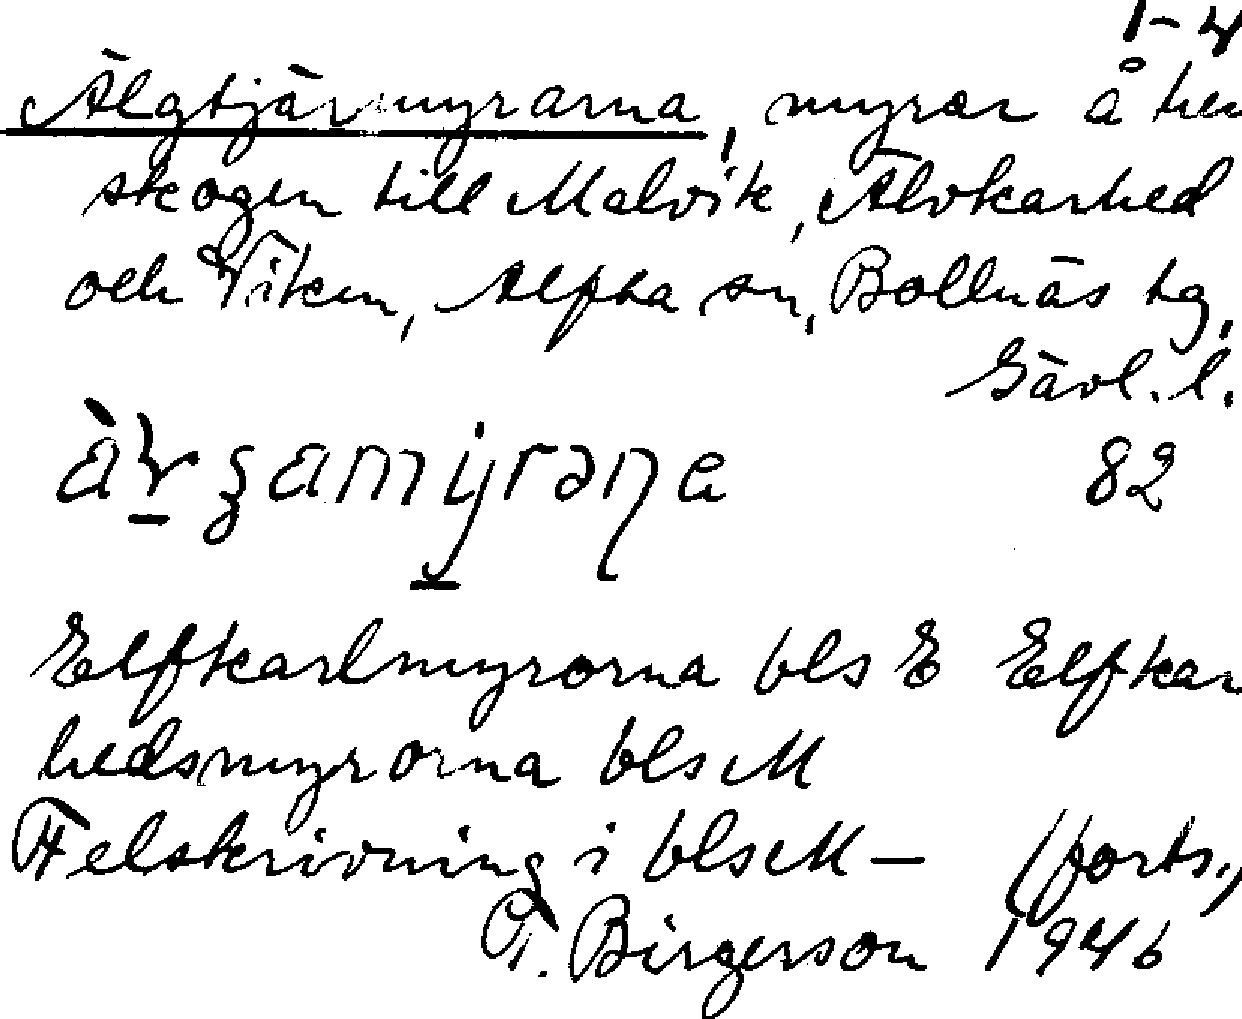 1-4
Älgtjärnmyrarna, myrar å hem
skogen till Malvik, Älvkarhed
och Viken, Alfta sn, Bollnäs tg,
Gävl. l.
82
Elfkarlmyrorna bls E Elfkar
hedsmyrorna bls M
Felskrivning i bls M — (forts.)
T. Birgerson 1946